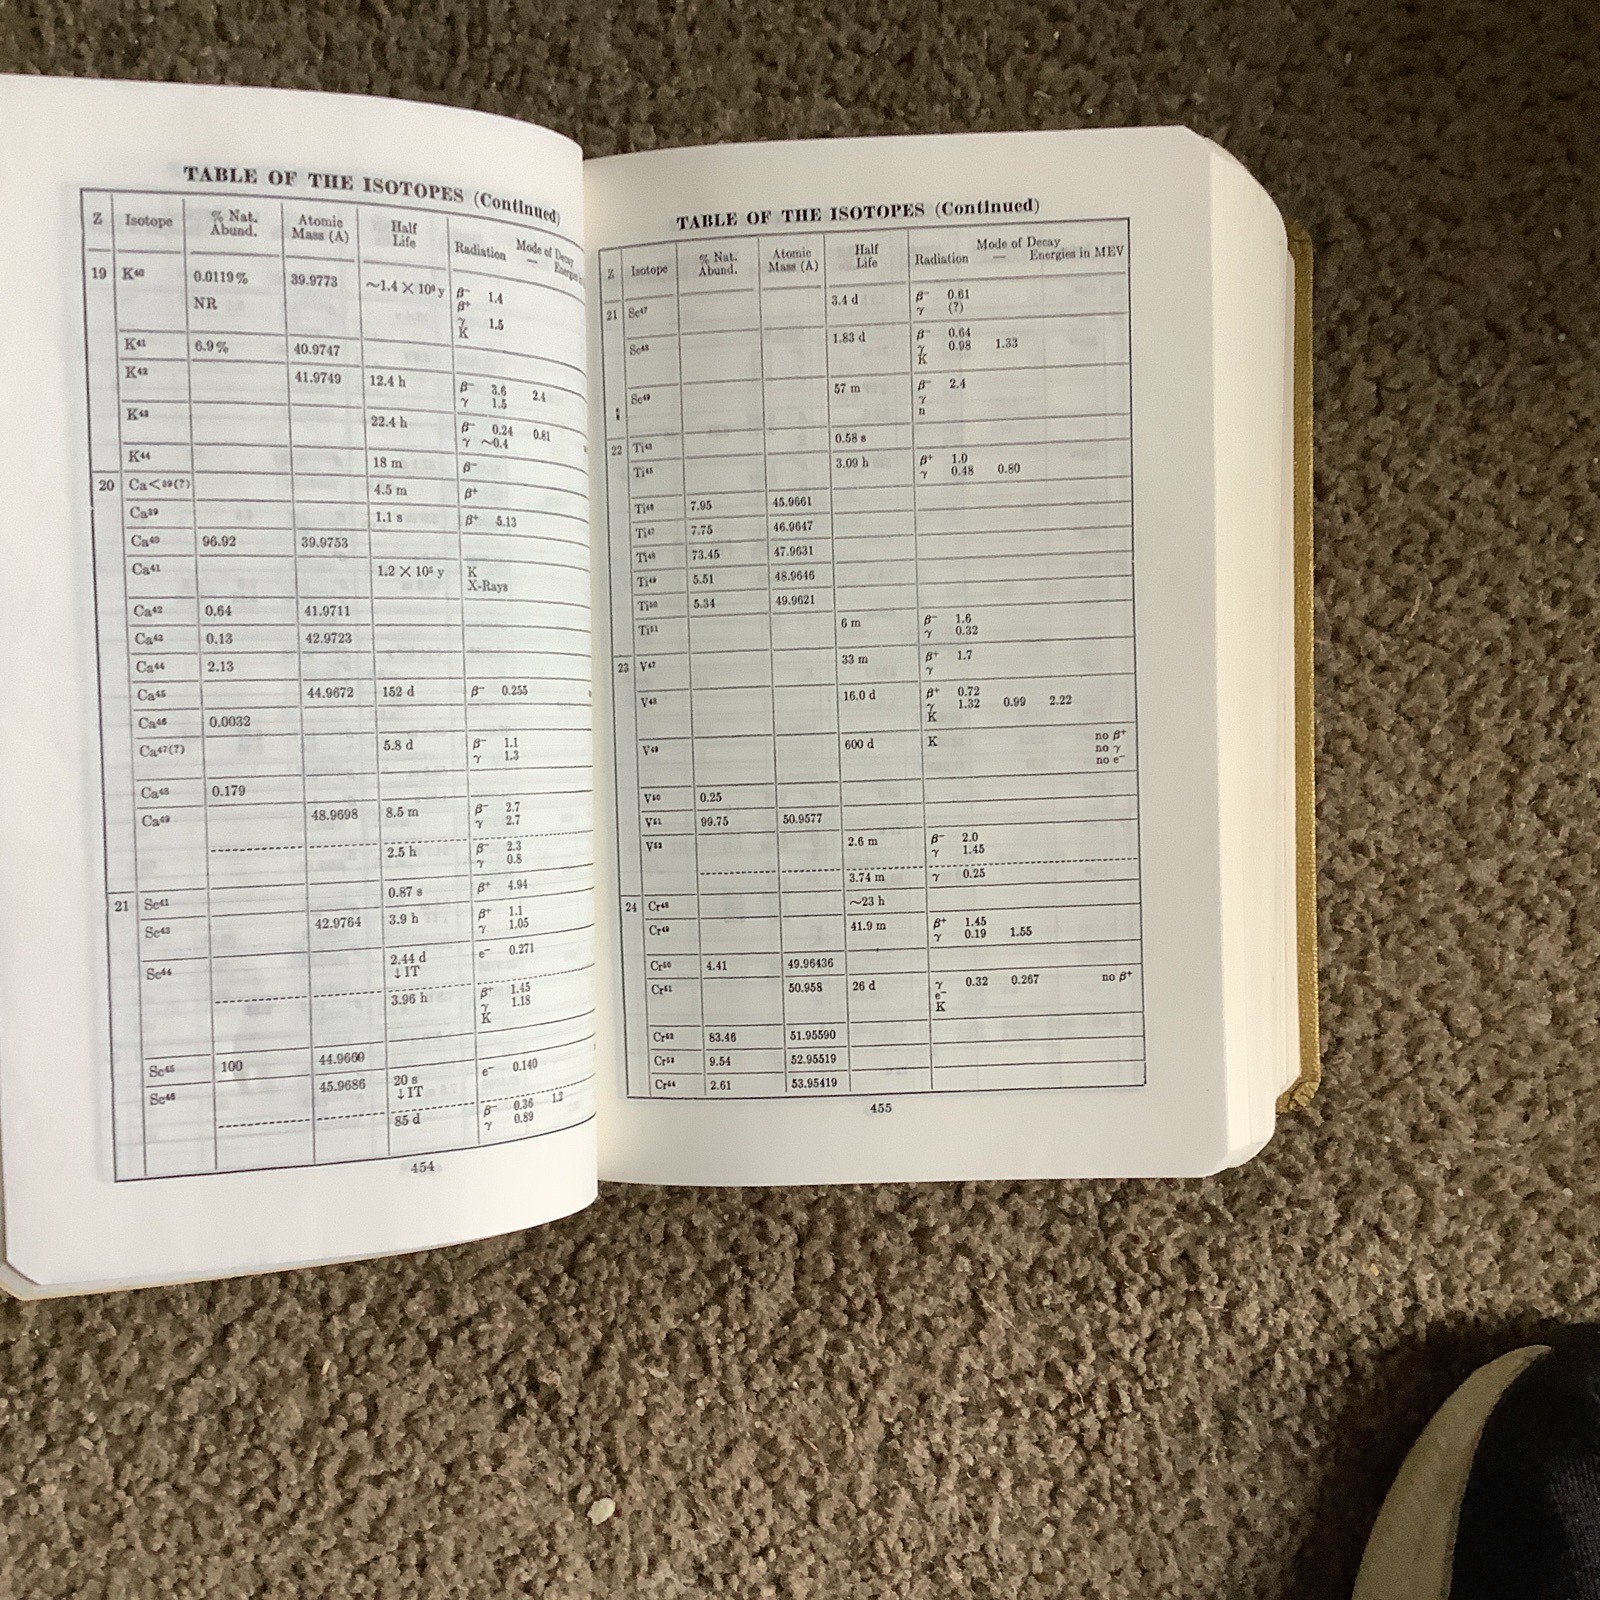 TABLE OF THE ISOTOPES (Continued)
Z Isotope % Nat. Abund. Atomic Mass (A) Half Life Radiation — Mode of Decay
19 K⁴⁰ 0.0119% 39.9773 ~1.4 × 10⁹ y β⁻ 1.4
NR β⁺
γ 1.5
K
K⁴¹ 6.9% 40.9747
K⁴² 41.9749 12.4 h β⁻ 3.6 2.4
γ 1.5
K⁴³ 22.4 h β⁻ 0.24 0.81
γ ~0.4
K⁴⁴ 18 m β⁻
20 Ca<³⁹(?) 4.5 m β⁺
Ca³⁹ 1.1 s β⁺ 5.13
Ca⁴⁰ 96.92 39.9753
Ca⁴¹ 1.2 × 10⁵ y K
X-Rays
Ca⁴² 0.64 41.9711
Ca⁴³ 0.13 42.9723
Ca⁴⁴ 2.13
Ca⁴⁵ 44.9672 152 d β⁻ 0.255
Ca⁴⁶ 0.0032
Ca⁴⁷(?) 5.8 d β⁻ 1.1
γ 1.3
Ca⁴⁸ 0.179
Ca⁴⁹ 48.9698 8.5 m β⁻ 2.7
γ 2.7
2.5 h β⁻ 2.3
γ 0.8
21 Sc⁴¹ 0.87 s β⁺ 4.94
Sc⁴³ 42.9764 3.9 h β⁺ 1.1
γ 1.05
Sc⁴⁴ 2.44 d e⁻ 0.271
↓IT
3.96 h β⁺ 1.45
γ 1.18
K
Sc⁴⁵ 100 44.9660
Sc⁴⁶ 45.9686 20 s e⁻ 0.140
↓IT
85 d β⁻ 0.36 1.2
γ 0.89
454
TABLE OF THE ISOTOPES (Continued)
Z Isotope % Nat. Abund. Atomic Mass (A) Half Life Radiation — Mode of Decay Energies in MEV
21 Sc⁴⁷ 3.4 d β⁻ 0.61
γ (?)
Sc⁴⁸ 1.83 d β⁻ 0.64
γ 0.98 1.33
K
Sc⁴⁹ 57 m β⁻ 2.4
γ
n
22 Ti⁴³ 0.58 s
Ti⁴⁵ 3.09 h β⁺ 1.0
γ 0.48 0.80
Ti⁴⁶ 7.95 45.9661
Ti⁴⁷ 7.75 46.9647
Ti⁴⁸ 73.45 47.9631
Ti⁴⁹ 5.51 48.9646
Ti⁵⁰ 5.34 49.9621
Ti⁵¹ 6 m β⁻ 1.6
γ 0.32
23 V⁴⁷ 33 m β⁺ 1.7
γ
V⁴⁸ 16.0 d β⁺ 0.72
γ 1.32 0.99 2.22
K
V⁴⁹ 600 d K no β⁺
no γ
no e⁻
V⁵⁰ 0.25
V⁵¹ 99.75 50.9577
V⁵² 2.6 m β⁻ 2.0
γ 1.45
3.74 m γ 0.25
24 Cr⁴⁸ ~23 h
Cr⁴⁹ 41.9 m β⁺ 1.45
γ 0.19 1.55
Cr⁵⁰ 4.41 49.96436
Cr⁵¹ 50.958 26 d γ 0.32 0.267 no β⁺
e⁻
K
Cr⁵² 83.46 51.95590
Cr⁵³ 9.54 52.95519
Cr⁵⁴ 2.61 53.95419
455